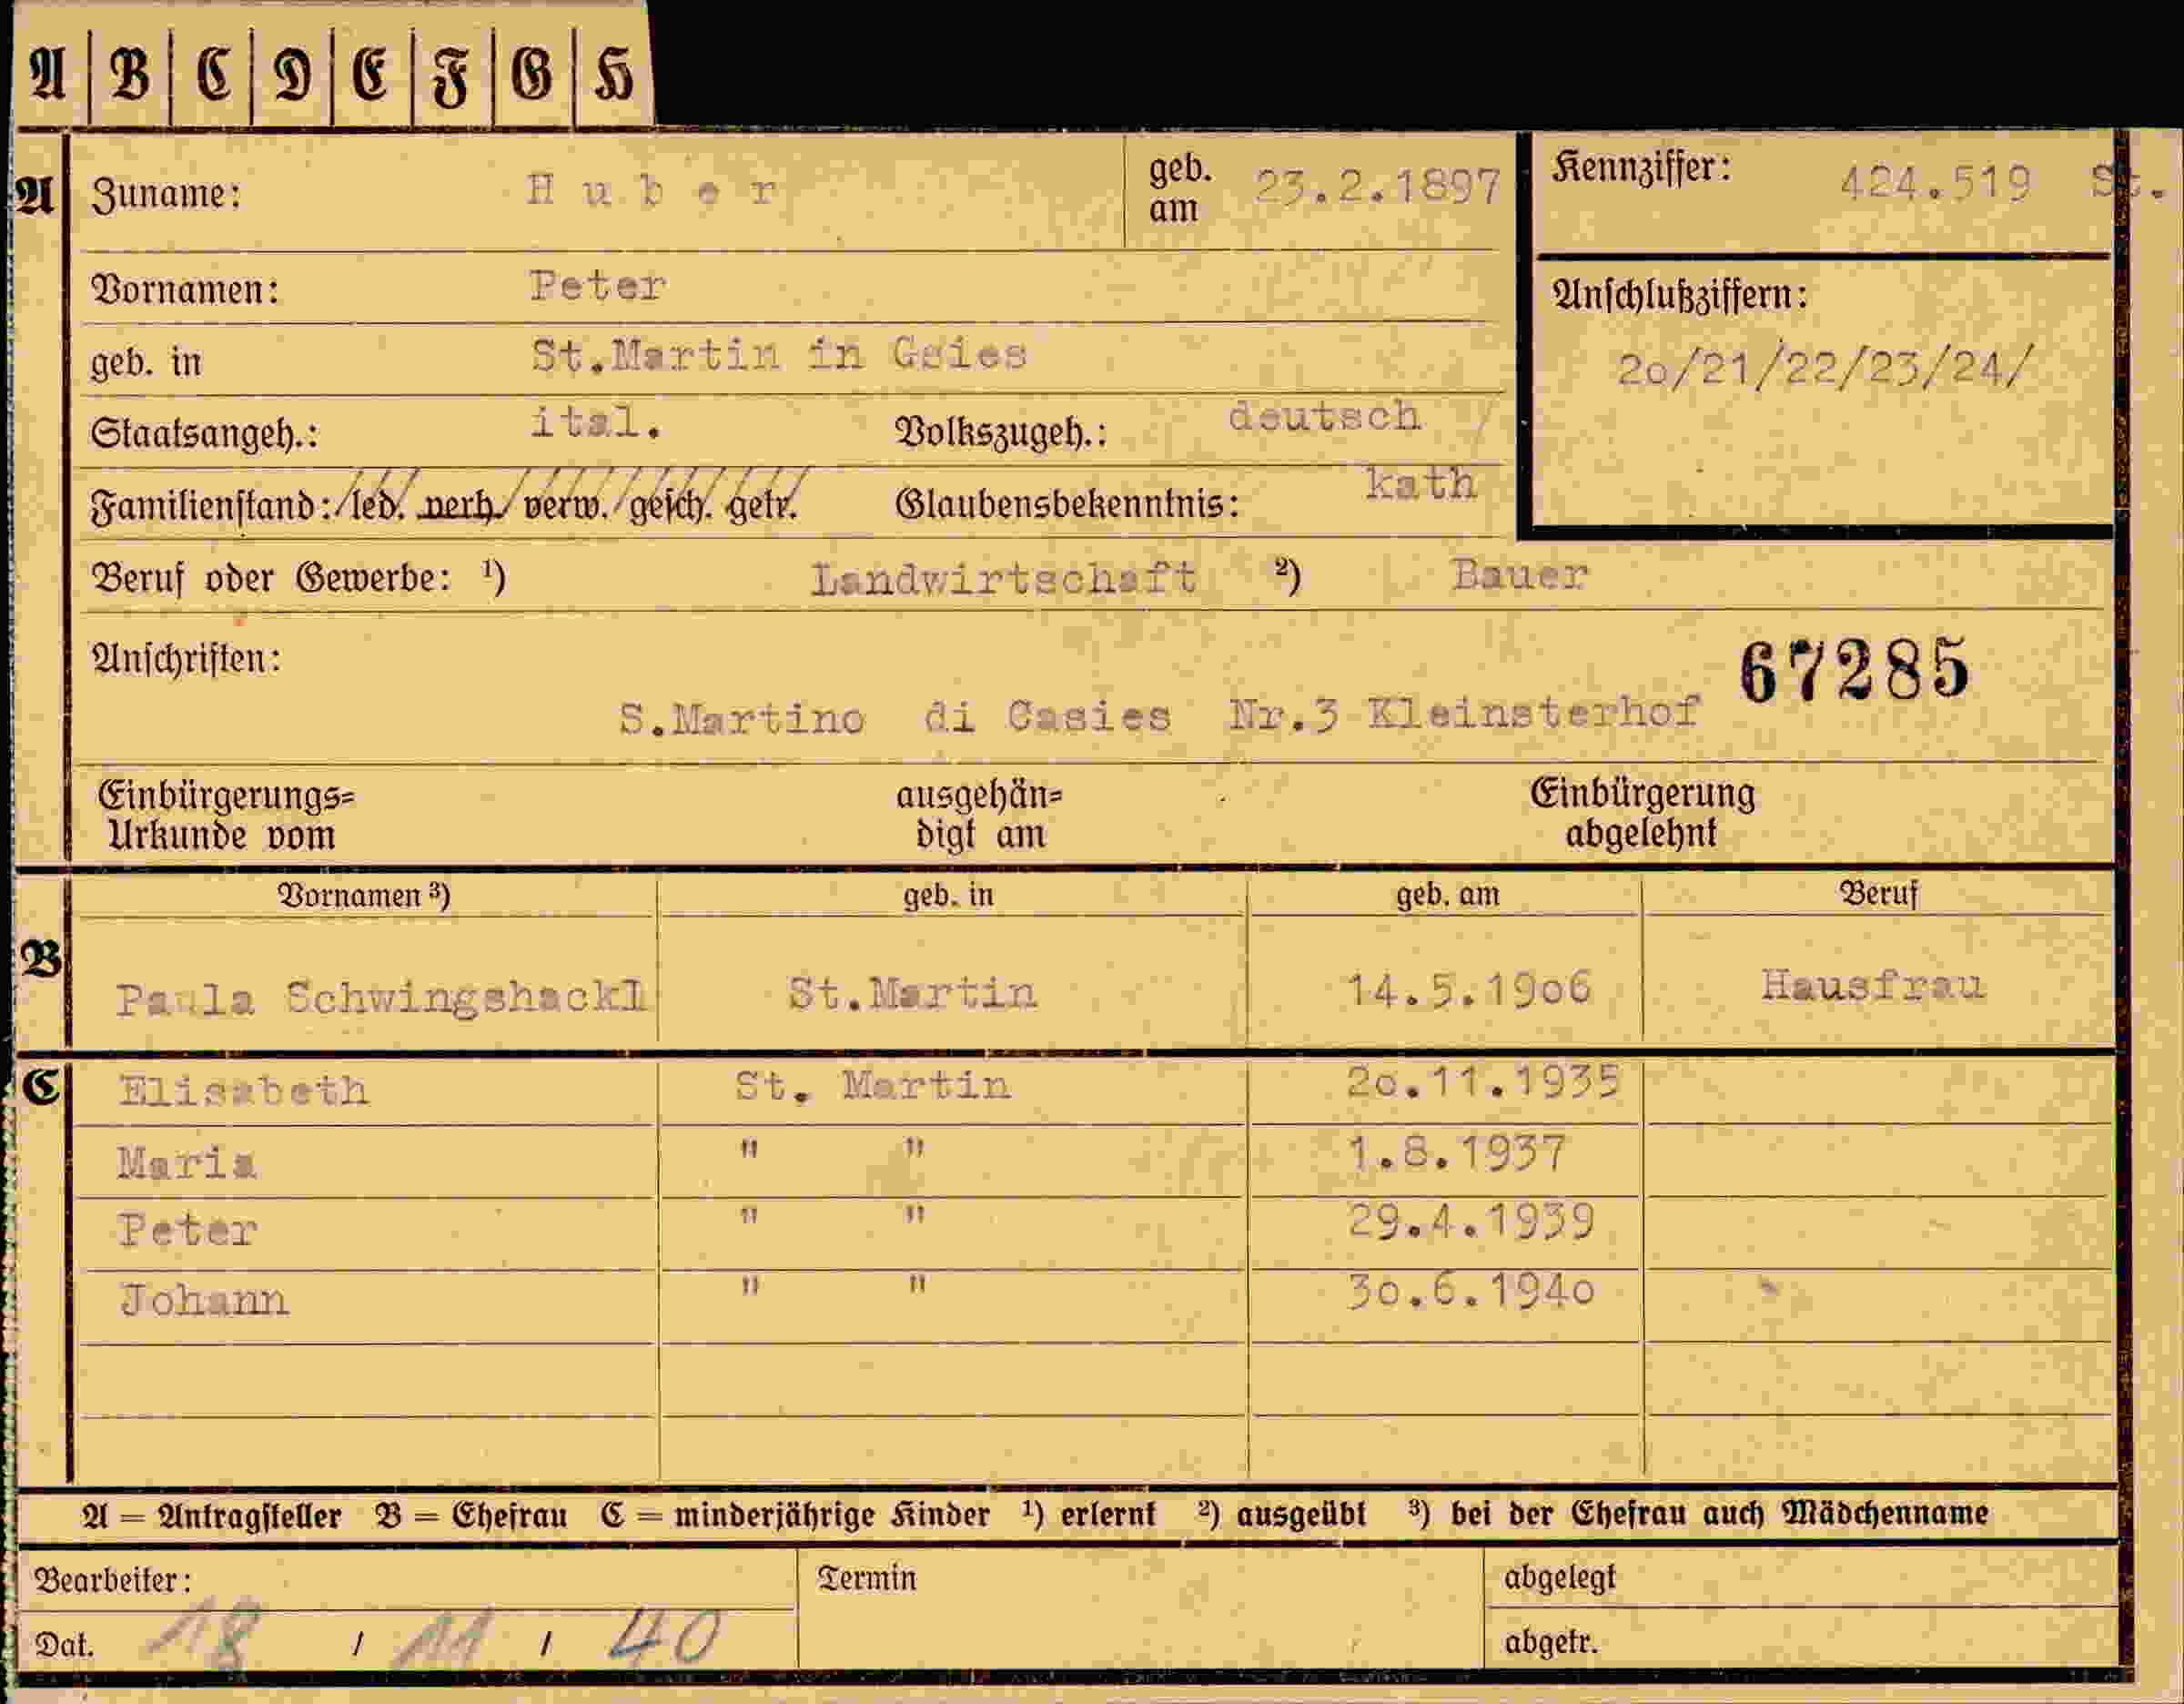 A B C D E F G H
A Zuname: Huber geb. am 23.2.1897 Kennziffer: 424.519 St.
Vornamen: Peter Anschlußziffern:
geb. in St.Martin in Gsies 20/21/22/23/24/
Staatsangeh.: ital. Volkszugeh.: deutsch
Familienstand: led. verh. verw. gesch. getr. Glaubensbekenntnis: kath
Beruf oder Gewerbe: ¹) Landwirtschaft ²) Bauer
Anschriften: 67285
S.Martino di Casies Nr.3 Kleinsterhof
Einbürgerungs= ausgehän= Einbürgerung
Urkunde vom digt am abgelehnt
Vornamen ³) geb. in geb. am Beruf
B Paula Schwingshackl St.Martin 14.5.1906 Hausfrau
C Elisabeth St. Martin 20.11.1935
Maria " " 1.8.1937
Peter " " 29.4.1939
Johann " " 30.6.1940
A = Antragsteller B = Ehefrau C = minderjährige Kinder ¹) erlernt ²) ausgeübt ³) bei der Ehefrau auch Mädchenname
Bearbeiter: Termin abgelegt
Dat. 18 / 11 / 40 abgetr.